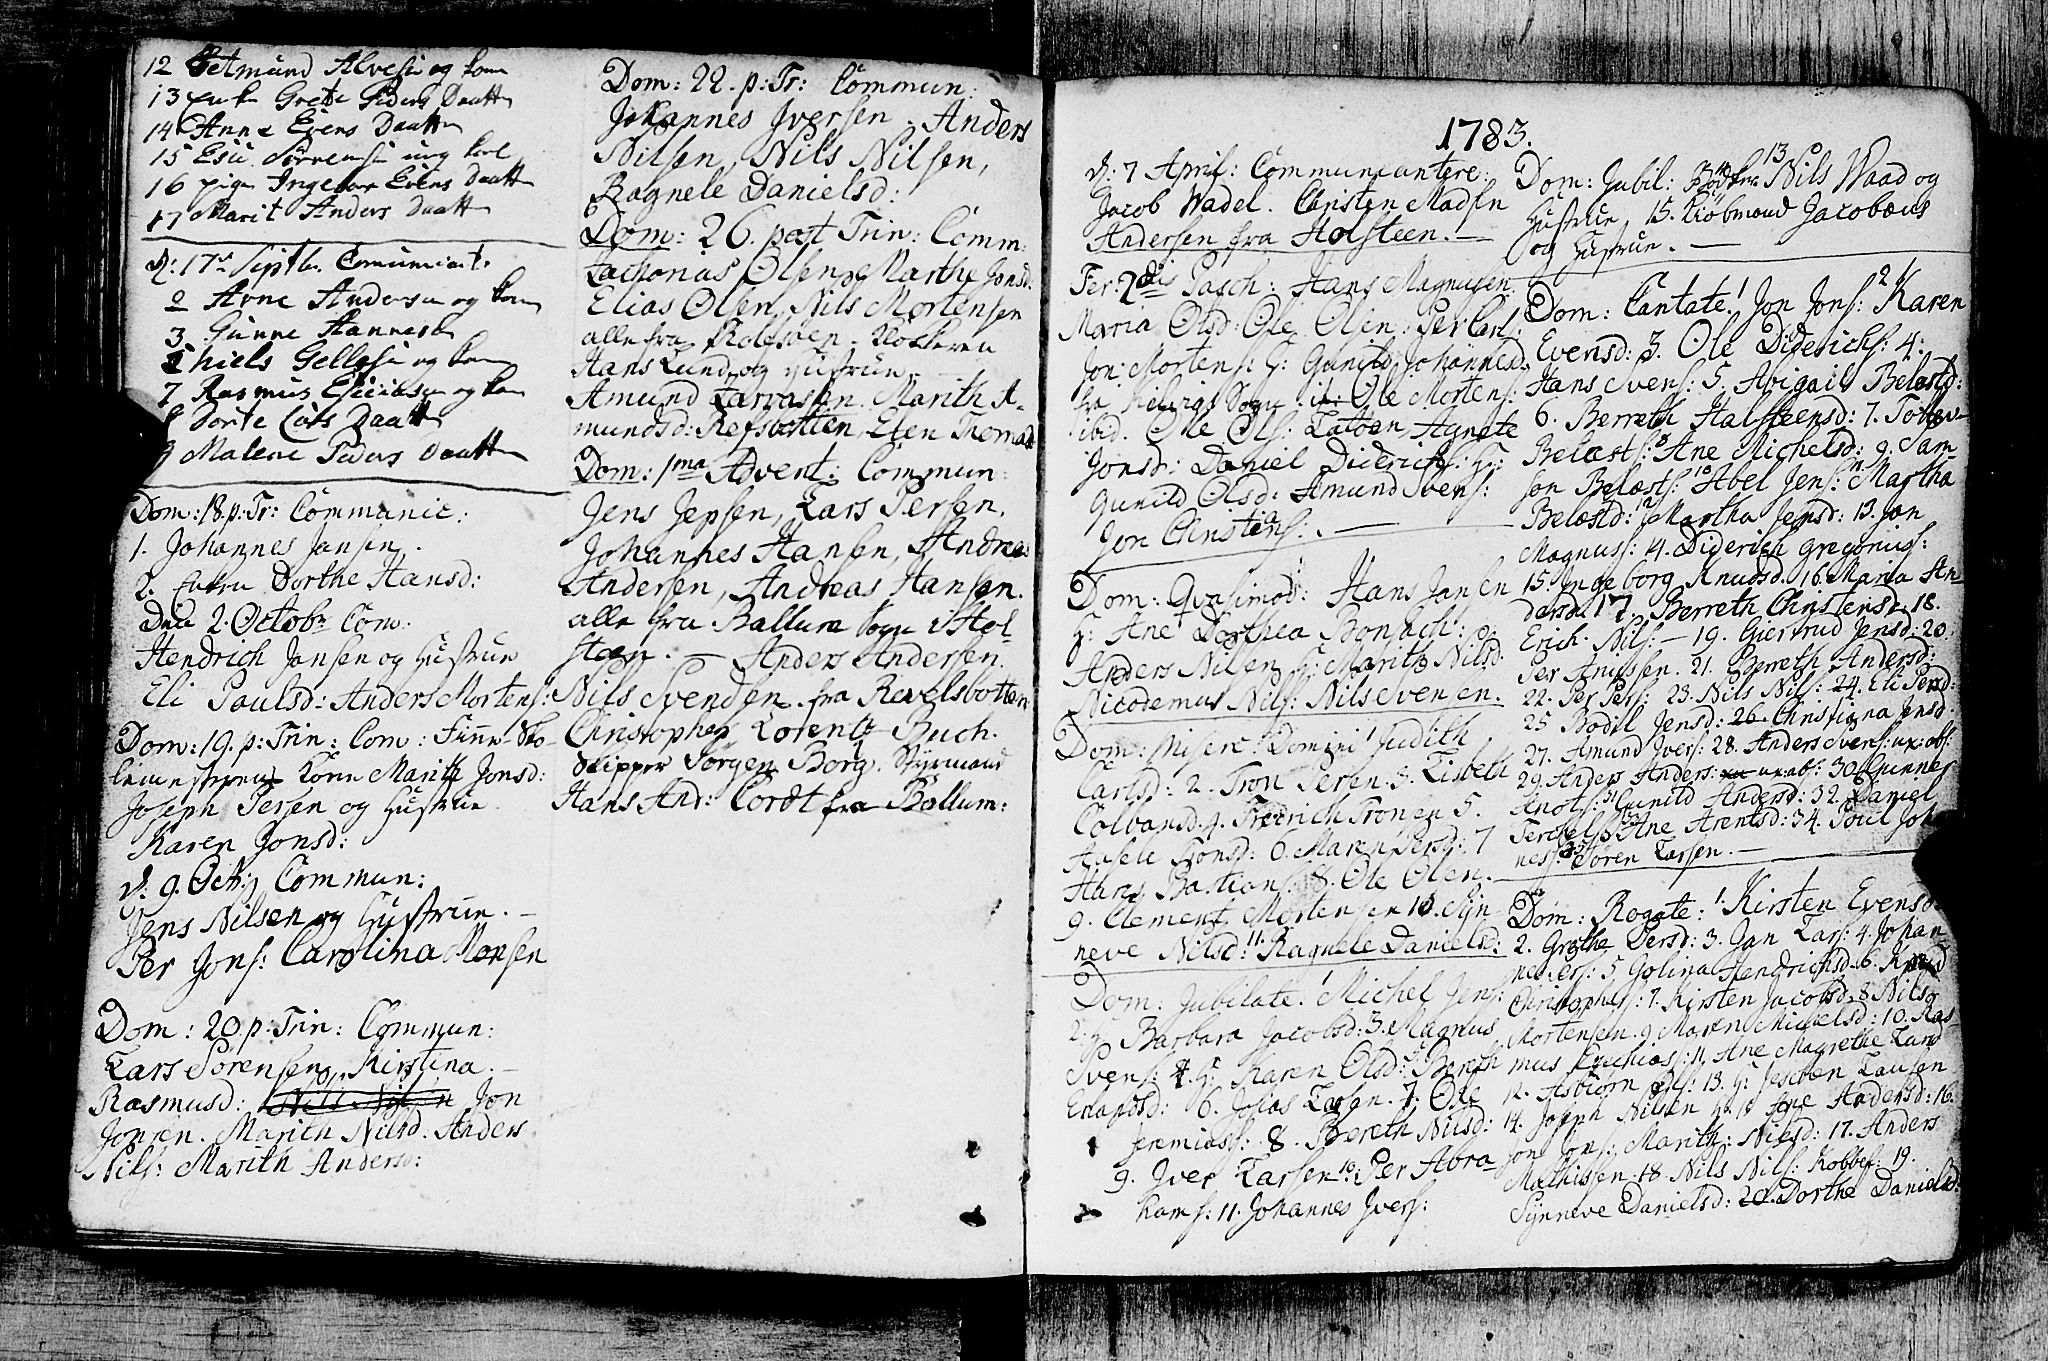 12 Amund Alvesen og kone
13 Enke Grete Peders Daatter
14 Anne Evens Daatter
15 Esu Sørrensen ung karl
16 pige Ingebor Evens Daatter
17 Marit Anders Daatter
d: 17de Septb. Comunicant.
2 Arne Andersen og kone
3 Gunne Hannesen
Niels Gellesen og kone
7 Rasmus og kone
8 Dorte Daatter
9 Malene Peders Daatter
Dom: 18. p: Tr: Communic:
1. Johannes Jansen.
2. Enken Dorthe Hansd:
Die 2. Octobr Com:
Hendrich Jansen og Hustrue
Eli Paulsd: Anders Mortens:
Dom: 19. p: Trin: Com: Finn-Sko-
lemesterens Kone Marith Jonsd:
Joseph Persen og Hustrue
Karen Jonsd:
d: 9. Octbr Commun:
Jens Nilsen og Hustrue. —
Per Jons: Carolina Monsen
Dom: 20. p: Trin: Commun:
Lars Sørensen, Kirstina
Rasmusd: Nils Nilsen Jon
Jonsen. Marith Nilsd. Anders
Nils: Marith Andersd:
Dom: 22. p: Tr: Commun:
Johannes Iversen. Anders
Nilsen, Nils Nilsen,
Ragnele Danielsd:
Dom: 26. post Trin: Comm:
Zacharias Olsen og Marthe Jonsd.
Elias Olsen, Nils Mortensen
alle fra Rolfsøen. Klokkeren
Hans Lund og Hustrue.
Amund Larrassen. Marith A-
mundsd: Refsbotten, Elen Thomasd
Dom: 1ma Advent: Commun:
Jens Jepsen, Lars Persen.
Johannes Hansen, Andreas
Andersen, Andreas Hansen.
alle fra Ballum Sogn i Hol-
steen. — Anders Andersen.
Nils Svendsen fra Revelsbotten
Christopher Lorentz Buch.
Skipper Jørgen Borg. Styrmand
Hans And: Cordt fra Ballum:
1783.
d: 7 April: Communicantere:
Jacob Wadel. Christen Madsen
Andersen fra Holsteen. —
Fer: 2dis Pasch: Hans Magnusen
Maria Olsd: Ole Olsen: Per Carls:
Jon Mortens: H: Gunild Johannesd.
fra Sogn. Ole Mortens:
ibid. Ole Ols: Agnete
Jonsd: Daniel Diderichs: H:
Gunild Olsd: Amund Svens:
Jon Christens: —
Dom: Qvasimod: Hans Jansen
H: Ane Dorthea Bonsach:
Anders Nilsen H: Marith Nilsd.
Nicodemus Nils: Nils Svensen.
Dom: Miserc: Domini 1 Judith
Carlsd: 2. Tron Persen 3. Lisbeth
Colbansd. 4. Fredrich Tronsen 5.
Tronsd: 6. Maren Persd: 7
Hans Bastians: 8. Ole Olsen.
9. Clement Mortensen 10. Syn
neve Nilsd: 11. Ragnele Danielsd:
Dom: Jubilate. 1 Michel Jens:
2. H: Barbara Jacobsd: 3. Magnus
Svens: 4. H: Karen Olsd: 5. Bereth
Enaretsd: 6. Johas Larsen. 7. Ole
Jeremias: 8. Bereth Nilsd:
9. Iver Larsen 10. Per Abra
hams: 11. Johannes Ivers:
Dom: Jubil: Bødker 13 Nils Waad og
Hustrue, 15. Kiøbmand Jacobæus
og Hustrue. —
Dom: Cantate. 1 Jon Jons: 2 Karen
Evensd: 3. Ole Diderichs: 4.
Hans Ivens: 5. Abigail Belæstd:
6. Berreth Halsteensd: 7.
Belæst: 8 Ane Michelsd: 9. Sam-
son Belæsts: 10 Abel Jens: 11 Martha
Belæstd: 12 Martha Jensd: 13. Jon
Magnus: 14. Diderich Gregorius:
15. Ingeborg Knudsd. 16. Maria An-
dersd: 17. Berreth Christensd. 18.
Erich Nils: — 19. Giertrud Jensd: 20.
Per Amussen. 21. Berreth Andersd:
22. Per Pers: 23. Nils Nils: 24. Eli Persd:
25 Bodil Jensd: 26. Christina Jensd:
27. Amund Ivers: 28. Anders Svens: ux: abs:
29. Anders Anders: ux. abs: 30 Gunner
Knots: 31 Gunild Andersd: 32. Daniel
Terchels: 33 Ane Arentsd: 34. Poul Johan
nes: 35 Søren Larsen. —
Dom: Rogate: 1. Kirsten Evensd:
2. Grethe Persd: 3. Jan Lars: 4. Johan
nes Pers: 5 Golina Hendrichsd. 6. Knud
Christophers: 7. Kirsten Jacobsd. 8. Nils
Mortensen. 9 Maren Michelsd: 10. Ras-
mus Ezechias: 11. Ane Magrethe Larsd
12. Asbiørn Nils: 13. H: Larsen
14. Joseph Nilsen H: 15 Ane Andersd: 16.
Jon Jons: Marith: Nilsd: 17. Anders
Mathissen. 18. Nils Nils: Kobbef: 19.
Synneve Danielsd: 20. Dorthe Danielsd: